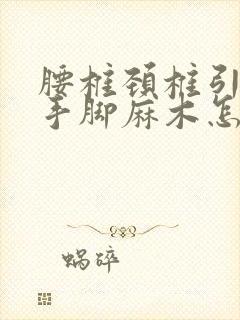 腰椎颈椎引
手脚麻木怎
蜗碎